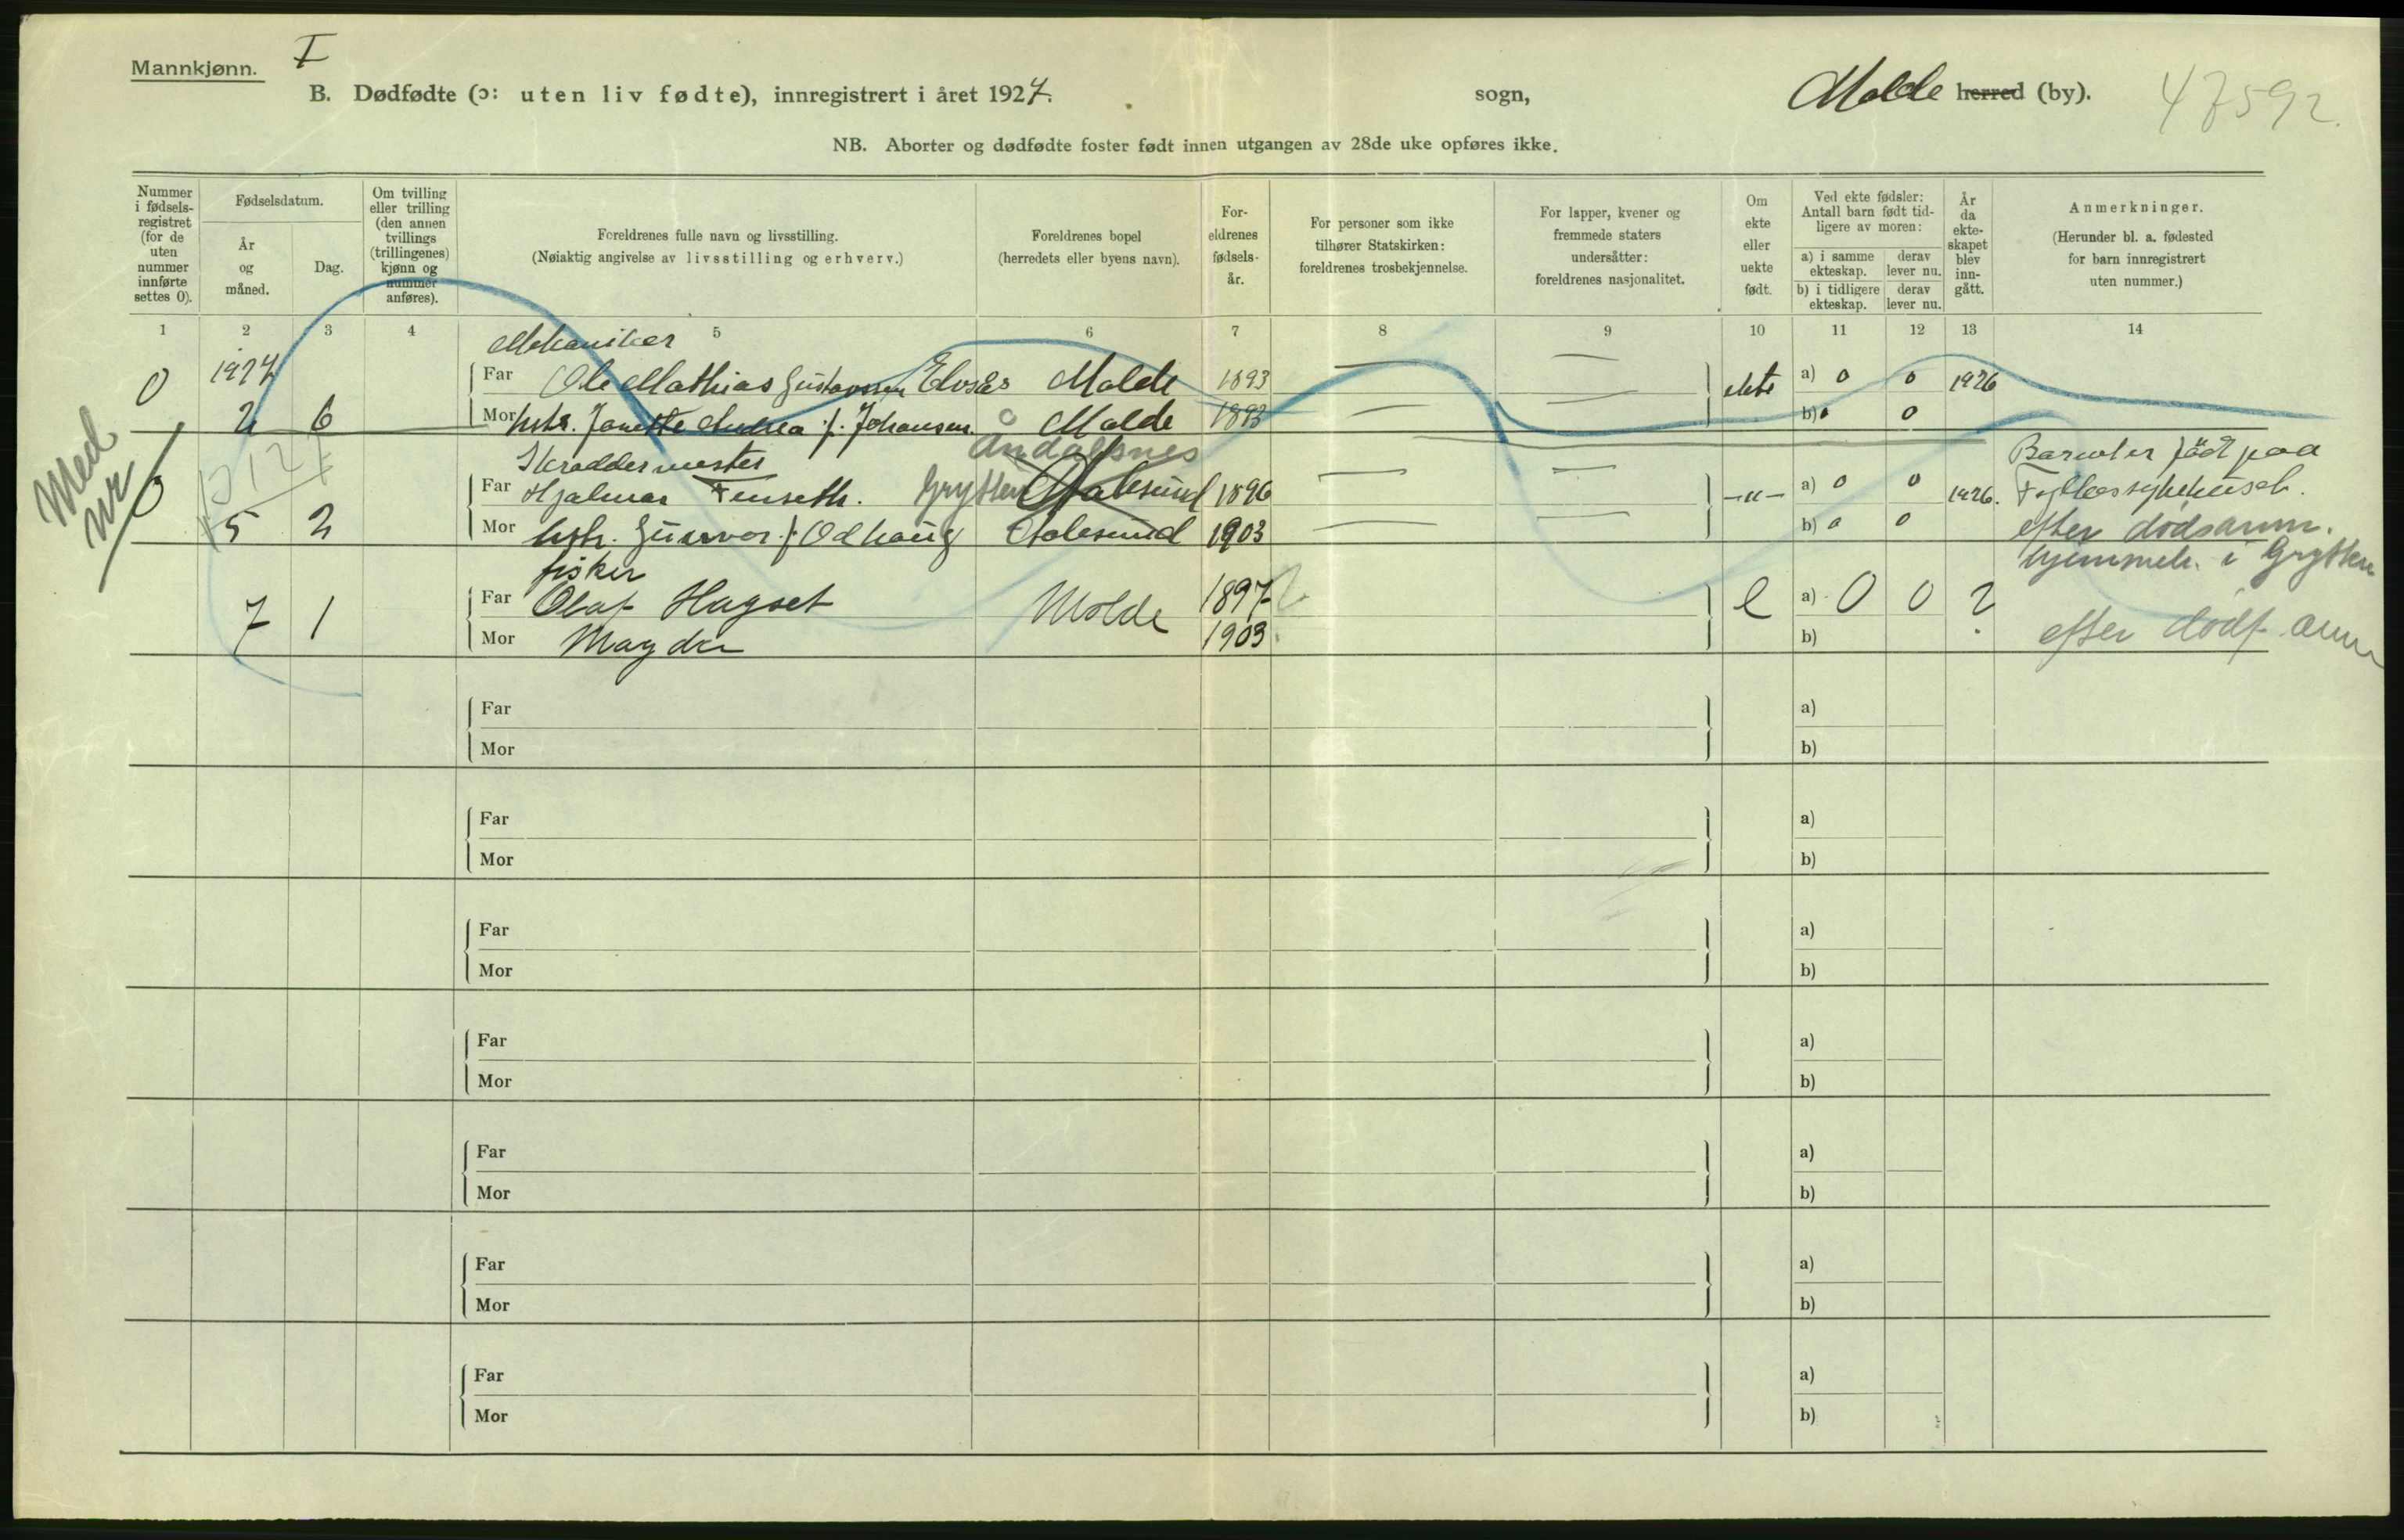 Mannkjønn. I
B. Dødfødte (ɔ: uten liv fødte), innregistrert i året 1927. sogn, Molde herred (by). 47592.
NB. Aborter og dødfødte foster født innen utgangen av 28de uke opføres ikke.
Nummer i fødsels-registret (for de uten nummer innførte settes 0).
Fødselsdatum.
År og måned.
Dag.
Om tvilling eller trilling (den annen tvillings (trillingenes) kjønn og nummer anføres).
Foreldrenes fulle navn og livsstilling.
(Nøiaktig angivelse av livsstilling og erhverv.)
Foreldrenes bopel
(herredets eller byens navn).
For-eldrenes fødsels-år.
For personer som ikke tilhører Statskirken: foreldrenes trosbekjennelse.
For lapper, kvener og fremmede staters undersåtter: foreldrenes nasjonalitet.
Om ekte eller uekte født.
Ved ekte fødsler: Antall barn født tid-ligere av moren:
a) i samme ekteskap.
derav lever nu.
b) i tidligere ekteskap.
derav lever nu.
År da ekte-skapet blev inn-gått.
Anmerkninger.
(Herunder bl. a. fødested for barn innregistrert uten nummer.)
1 2 3 4 5 6 7 8 9 10 11 12 13 14
Mekaniker
0 1927 Far Ole Mathias Gustavsen Molde 1893 — — ekte a) 0 0 1926
2 6 Mor Janette Andrea f. Johansen Molde 1893 — — b) 0 0
Med nr
Skreddermester Åndalsnes Barnet er født paa
0 Far Hjalmar Grytten Aalesund 1896 — — —"— a) 0 0 1926. Fylkessykehuset.
5 2 Mor Gunvor f. Ødhaug Aalesund 1903 — — b) 0 0 efter dødsanm.
fisker hjemmeh. i Grytten
Far Olaf Hagset Molde 1897 e a) 0 0 ?
7 1 Mor Magda 1903. b) efter dødf. anm
Far a)
Mor b)
Far a)
Mor b)
Far a)
Mor b)
Far a)
Mor b)
Far a)
Mor b)
Far a)
Mor b)
Far a)
Mor b)